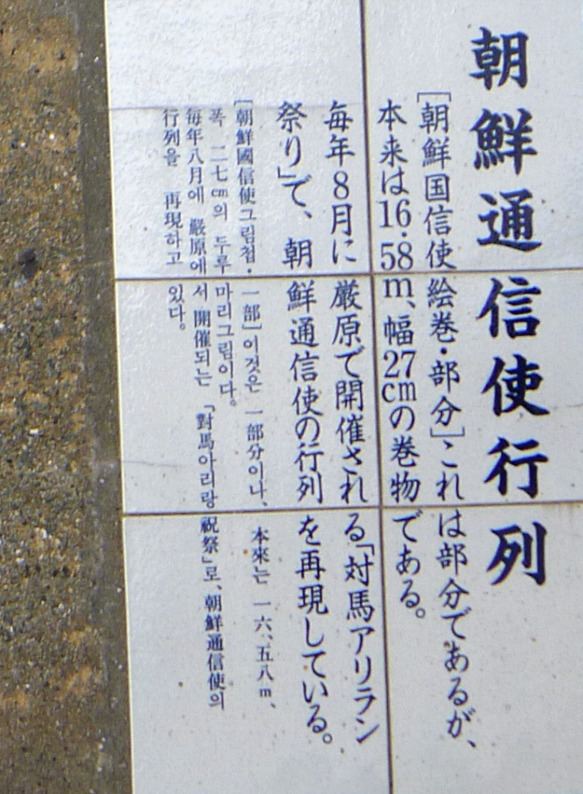 朝鮮通信使行列
［朝鮮国信使絵巻・部分］これは部分であるが、
本来は16・58m、幅27cmの巻物である。
毎年8月に厳原で開催される「対馬アリラン
祭り」で、朝鮮通信使の行列を再現している。
［朝鮮國信使그림첩・一部］이것은 一部分이나、本來는 一六、五八m、
폭 二七cm의 두루마리그림이다。
毎年八月에 嚴原에서 開催되는 「對馬아리랑祝祭」로、朝鮮通信使의
行列을 再現하고있다。